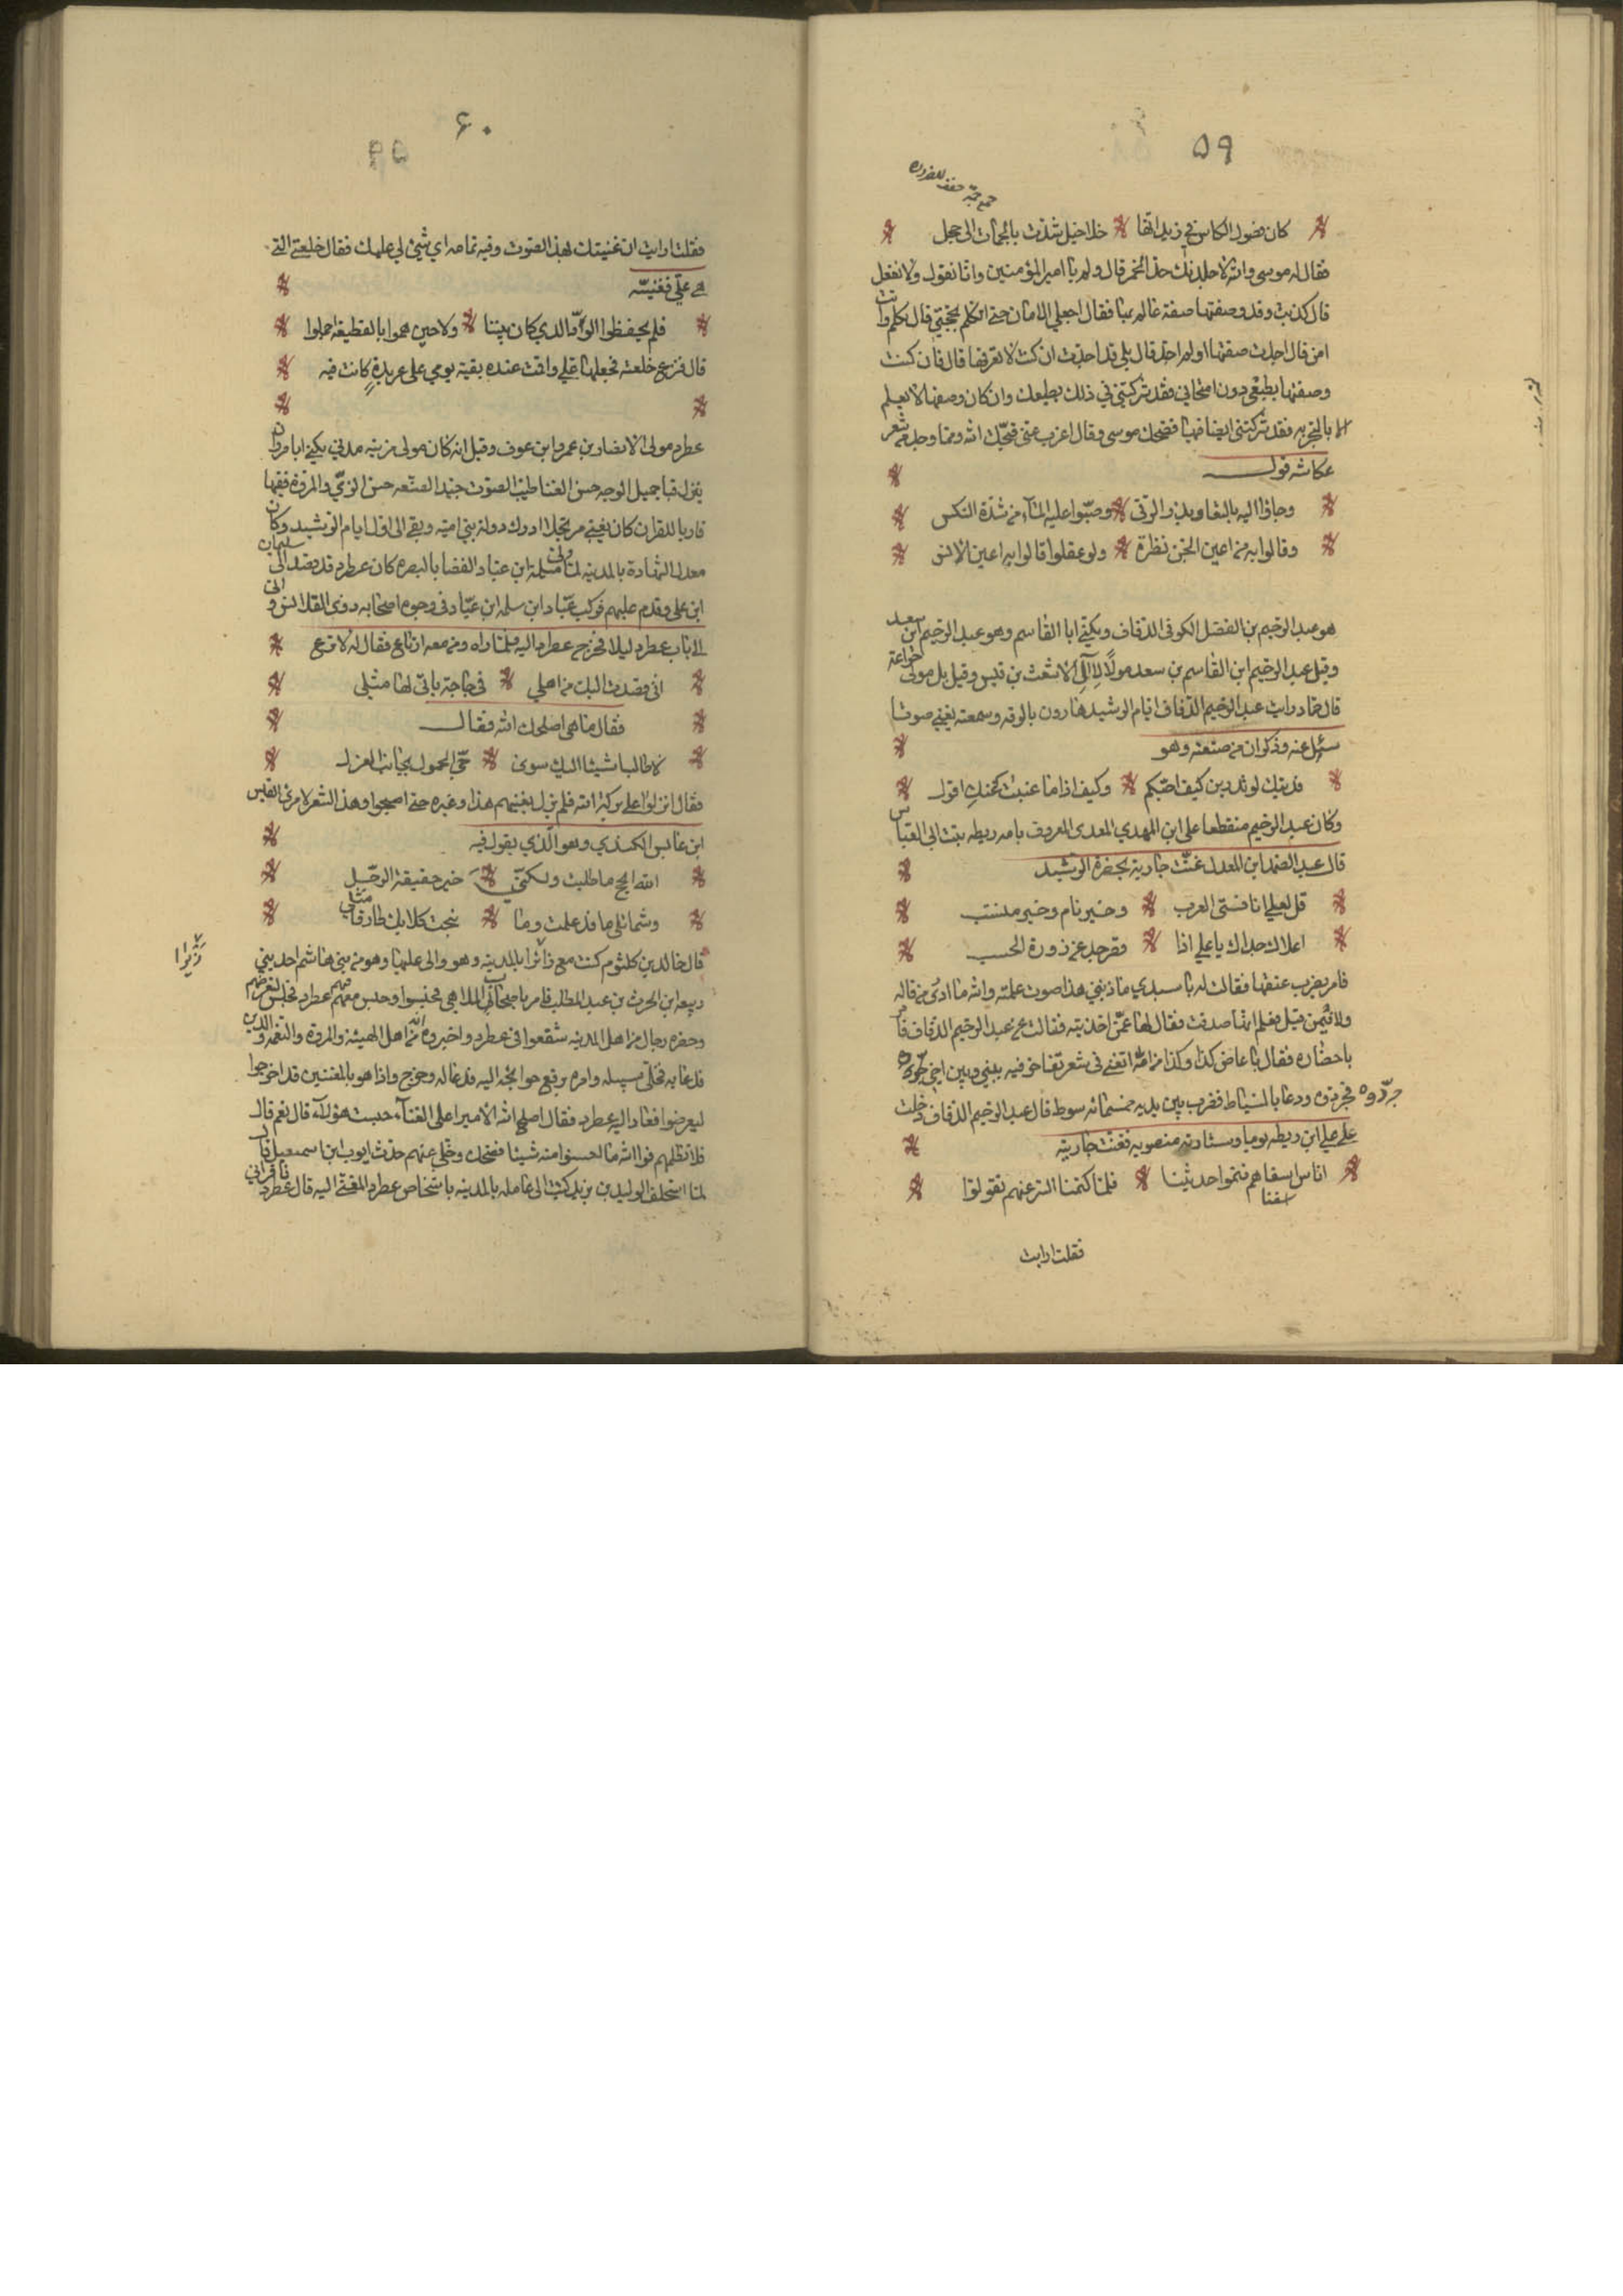 ٥٩
كان فضول الكاس في زبداتها خلاخيل شدت بالجمات الى حجل
فقال له موسى والله لاجلدنك حد الخمر قال ولم يا امير المؤمنين وانا نقول ولا نفعل
قال كذبت وقد وصفتها صفة عالم بها فقال اجعل لي الامان حتى اتكلم بحجتي قال تكلم وانت
امن قال اجدت صفتها او لم اجد قال بلى قد اجدت ان كنت لا تعرفها قال فان كنت
وصفتها بطبعي دون امتحاني فقد شركتني في ذلك بطبعك وان كان وصفها لا يعلم
الا بالتجربه فقد شركتني ايضا فيها فضحك موسى وقال اعزب عني قبحك الله ومما وجد من شعر
عكاشه قوله
وجاؤا اليه بالتعاويذ والرقى وصبوا عليه المآء من شدة النكس
وقالوا به من اعين الجن نظرة ولو عقلوا قالوا به اعين الانس
هو عبد الرحيم بن الفضل الكوفي الدفاف ويكنى ابا القاسم وهو عبد الرحيم ابن سعد
وقيل عبد الرحيم ابن القاسم بن سعد مولا لآل الاشعث بن قيس وقيل بل مولى خزاعة
قال حماد رايت عبد الرحيم الدفاف ايام الرشيد هارون بالرقه وسمعته يغني صوتا
سئل عنه وذكر انه من صنعته وهو
فديتك لو تدرين كيف احبكم وكيف اذا ما غبت عنك اقول
وكان عبد الرحيم منقطعا على ابن المهدي المعروف بامه ريطه بنت ابي العباس
قال عبد الصمد ابن المعدل غنت جارية بحضرة الرشيد
قل لعلي ايا فتى العرب وخير نام وخير منتسب
اعلاك جداك يا علي اذا قصر جد عن ذروة الحسب
فامر بضرب عنقها فقالت له يا سيدي ما ذنبي هذا صوت علمته والله ما ادري من قاله
ولا فيمن قيل فعلم انها صدقت فقال لها عمن اخذتيه فقالت عن عبد الرحيم الدفاف فامر
باحضاره فقال يا عاض كذا وكذا من امه اتغني في شعر تفاخر فيه بيني وبين اخي جردوه
جردوه فجردوه ودعا بالسياط فضرب بين يديه خمسمائه سوط قال عبد الرحيم الدفاف دخلت
على علي ابن ريطه يوما وستارته منصوبه فغنت جاريته
اناس امناهم فنموا حديثنا فلما كتمنا السر عنهم تقولوا
فقلت ارايت
٦٠
فقلت ارايت ان غنيتك هذا الصوت وفيه تمامه اي شئ لي عليك فقال خلعتي التي
هي علي فغنيته
فلم يحفظوا الود الذي كان بيننا ولا حين هموا بالقطيعه اجملوا
قال فنزع خلعته فجعلها علي واقمت عنده بقيه يومي على عربدة كانت فيه
عطرد مولى الانصار بن عمرو ابن عوف وقيل انه كان مولى مزينه مدني يكنى ابا هرون
ينزل قبا جميل الوجه حسن الغنا طيب الصوت جيد الصنعه حسن الزي والمروة فقيها
قاريا للقران كان يغني مرتجلا ادرك دولة بني اميه وبقي الى اول ايام الرشيد وكان
معدل الشهادة بالمدينه لما ولي سلمة ابن عباد القضا بالبصره كان عطرد قد قصد الى سليمان
ابن علي وقدم عليهم فركب عباد ابن سلمه ابن عباد في وجوه اصحابه ذوى القلانس واتى
الى باب عطرد ليلا فخرج عطرد اليه فلما راه ومن معه ارتاع فقال له لا ترع
انى قصدت اليك من اهلي في حاجة ياتى لها مثلى
فقال ما هي اصلحك الله فقال
لا طالبا شيئا اليك سوى حي الحمول بجانب العزل
فقال انزلوا على بركة الله فلم يزل يغنيهم هذا وغيره حتى اصبحوا وهذا الشعر لامرئ القيس
ابن عابس الكندي وهو الذي يقول فيه
الله انجح ما طلبت به خير حقيقة الرحل
وشمائلي ما قد علمت وما نبحت كلابك طارقا مثلي
قال خالد بن كلثوم كنت مع زبرا بالمدينه وهو والى عليها وهو من بني هاشم احد بني
زبرا
ربيعه ابن الحرث بن عبد المطلب فامر باصحاب الملاهي فحبسوا وحبس معهم عطرد فجلس ليعرضهم
وحضره رجال من اهل المدينه شفعوا في عطرد واخبروه انه من اهل الهيئه والمروة والنعمه والدين
فدعا به فخلى سبيله وامره برفع حوائجه اليه فدعا له وخرج واذا هو بالمغنين قد اخرجوا
ليعرضوا فعاد اليه عطرد فقال اصلح الله الامير اعلى الغنآء حبست هؤلآء قال نعم قال
فلا تظلمهم فوالله ما احسنوا منه شيئا فضحك وخلى عنهم حدث ايوب ابن اسمعيل قال
لما استخلف الوليد بن يزيد كتب الى عامله بالمدينه باشخاص عطرد المغني اليه قال عطرد فاقراني